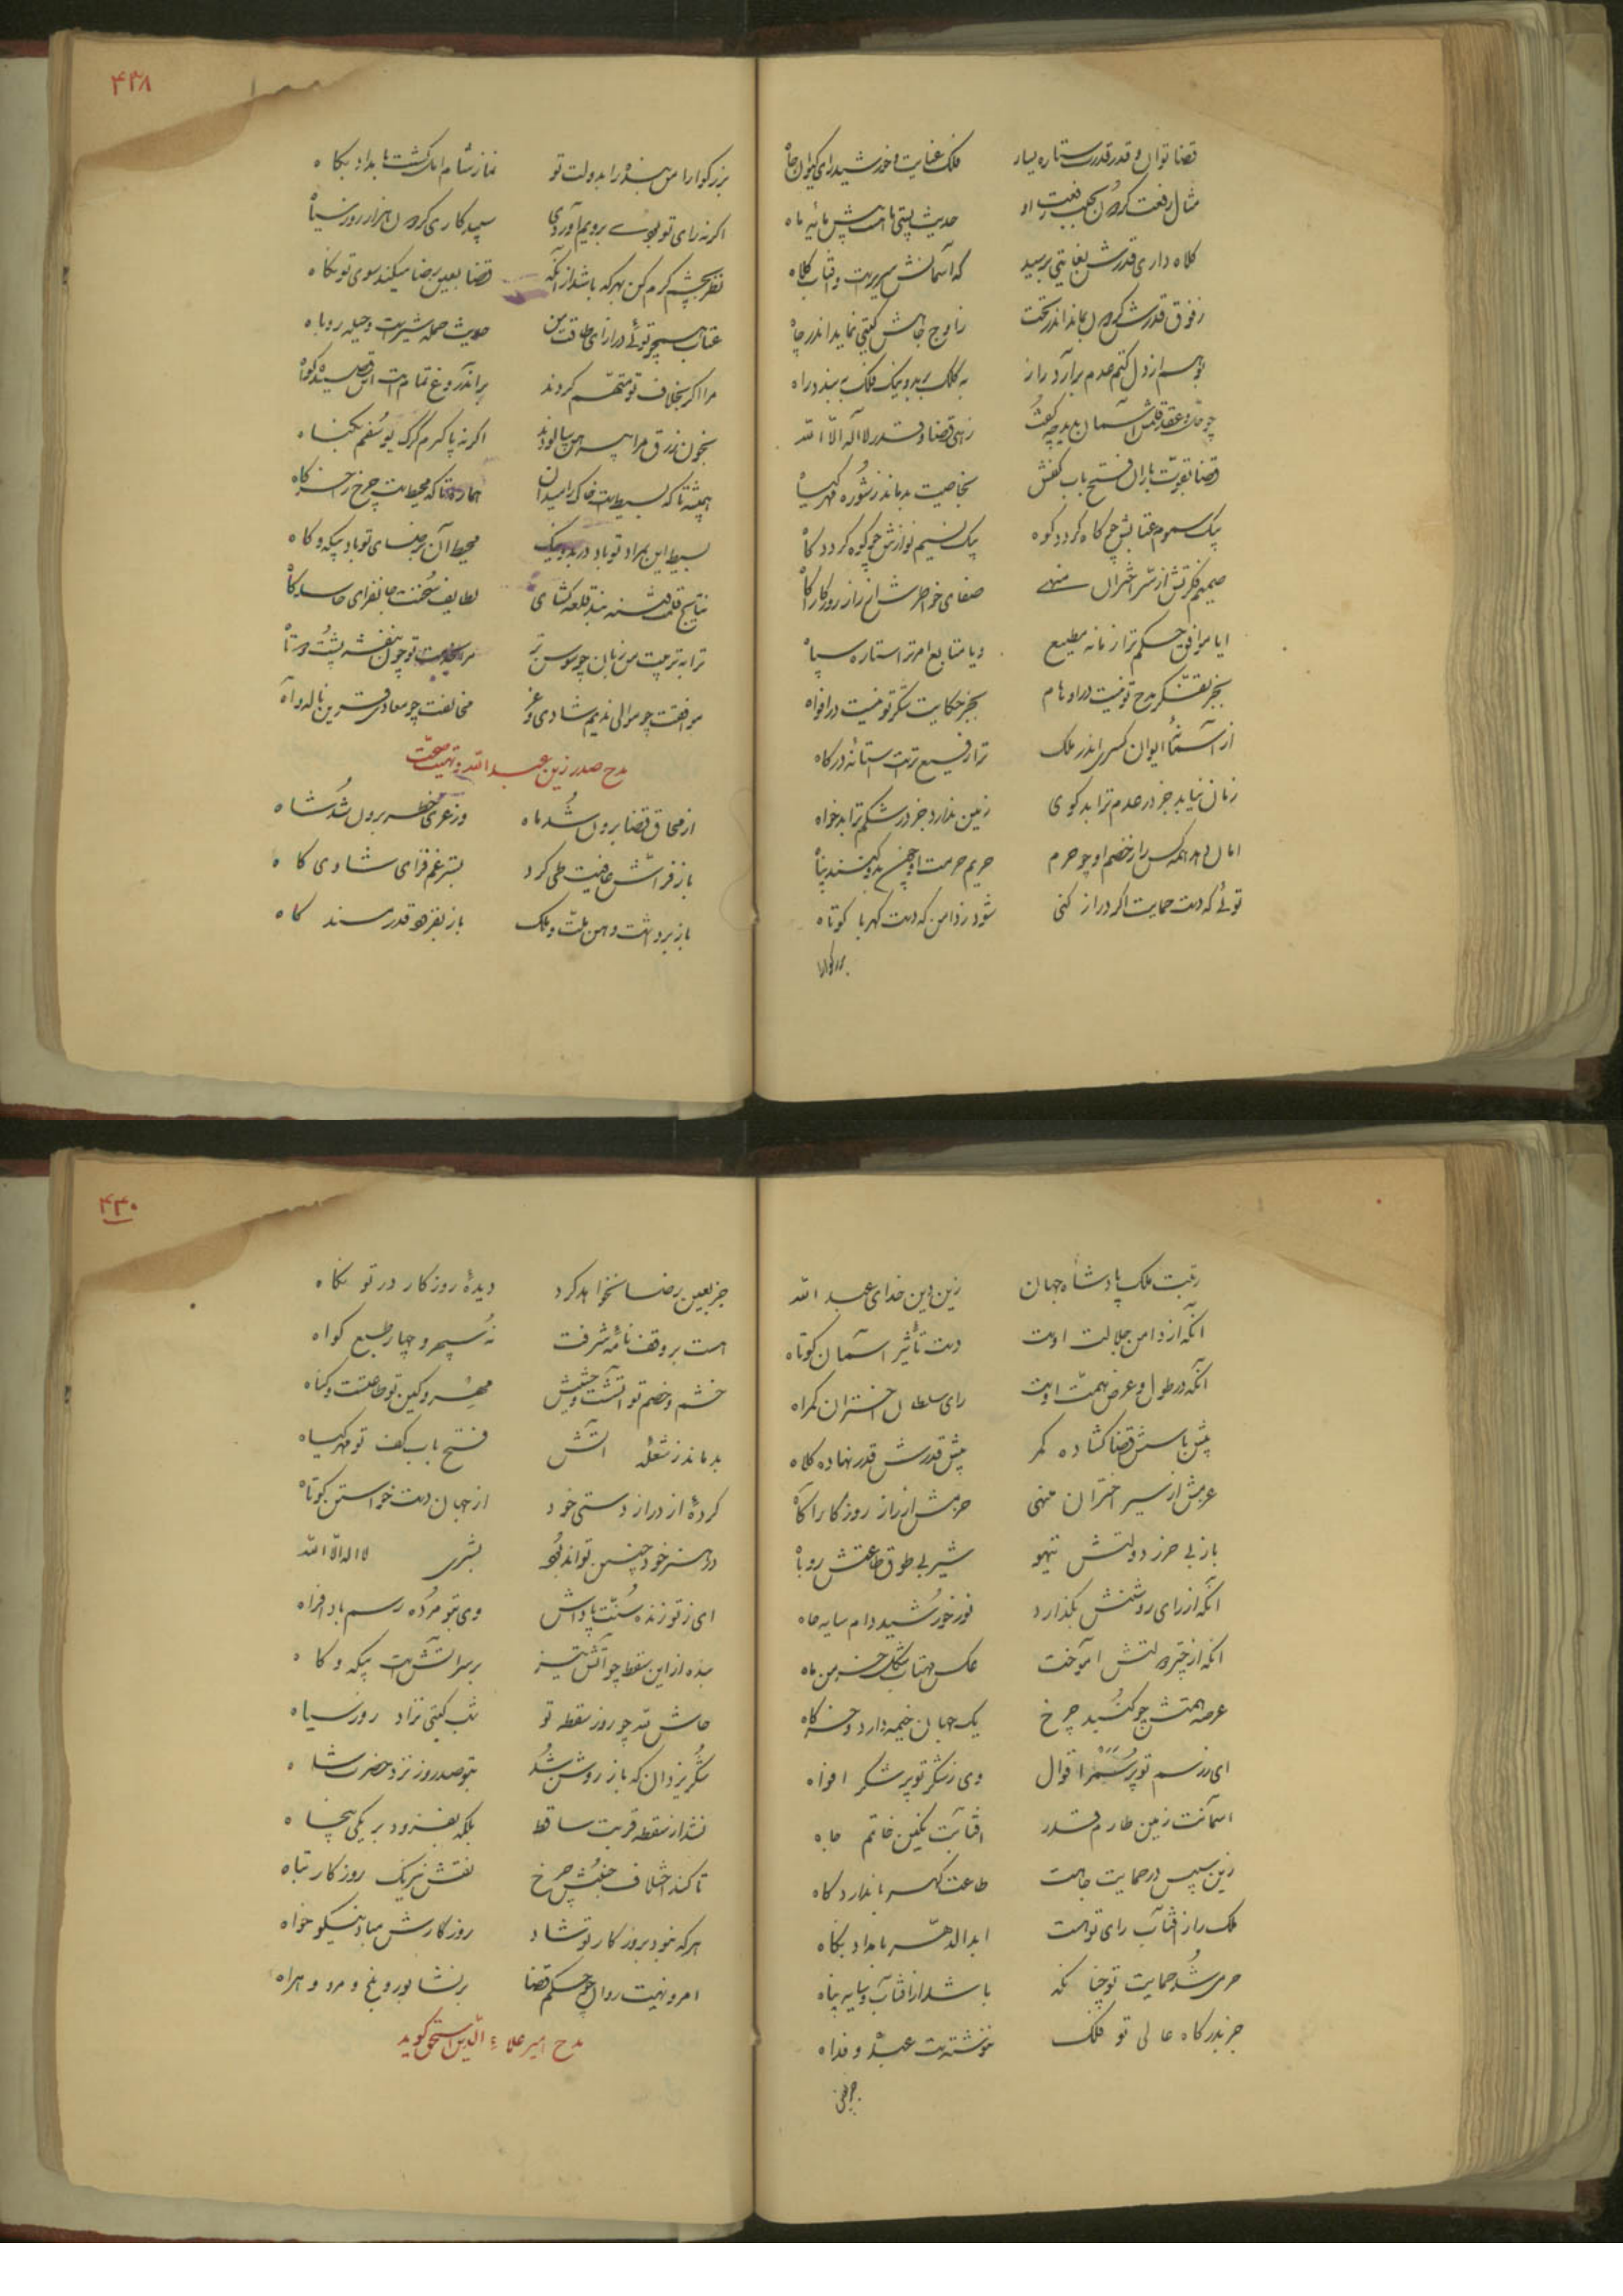 قضا توان و قدر قدرت ستاره یسار	فلک عنایت و خورشید رای کیوان جاه
مثال رفعت گردون بجنب رفعت او	حدیث پستی ماهست پیش پایه ماه
کلاه داری قدرش بغایتی برسید	که آسمانش سریرست و آفتاب کلاه
ز فوق قدرش گردون بماند اندر تحت	ز اوج جاهش کیتی نماید اندر چاه
بوهم از دل کتم عدم برآرد راز	به کلک بر بد و نیک فلک ببندد راه
چو حل و عقد قلمش آسمان بدید چه گفت	زهی قضا و قدر لا اله الا الله
قضا بقوت باران فتح باب کفش	بخاصیت بدماند ز شوره مهر کیاه
بیک سموم عتابش چو کاه کردد کوه	بیک نسیم نوازش چو کوه کردد کاه
ضمیر فکرتش از سر اختران منهی	صفای خواطرش از راز روزکار آکاه
ایا موافق حکم ترا زمانه مطیع	و یا متابع امر ترا ستاره سپاه
بجز تفکر مدح تو نیست در اوهام	بجز حکایت شکر تو نیست در افواه
از آستانه ایوان کسری اندر ملک	ترا رفیع ترست آستانه درکاه
زمان نیابد جز در عدم ترا بدکوی	زمین ندارد جز در شکم ترا بدخواه
امان دهد همه کس را ز خصم او چو حرم	حریم حرمت او چون بدو کنند پناه
توئی که دست حمایت اکر دراز کنی	شود ز دامن که دست کهربا کوتاه
بزرکوارا
۴۳۸
بزرکوارا من بنده را بدولت تو	نماز شام امل کشت بامداد بکاه
اکر نه رای تو بودی برویم آوردی	سپیدکاری کردون هزار روز سیاه
نظر بچشم کرم کن بهر که باشد از آنکه	قضا بعین رضا میکند سوی تو نکاه
عتاب همچو توئی در ازای طاقت من	حدیث حمله شیرست و حیله روباه
مرا اکر بخلاف تو متهم کردند	بر اندروغ تمامست این قصیده کواه
بخون زرق مرا پیرهن بیالودند	اکر نه پاکترم از کرک یوسفم بکناه
همیشه تا که بسیطست خاک را میدان	هماره تا که محیطست چرخ را خرکاه
بسیط این بمراد تو باد در بد و نیک	محیط آن برضای تو باد بیکه و کاه
نتایج قلمت فتنه بند قلعه کشای	لطایف سخنت جانفزای حاسد کاه
ترا به تربیت من زبان چو سوسن تر	مرا بخدمت تو چون بنفشه پشت دوتاه
موافقت چو موالی ندیم شادی و عز	مخالفت چو معادی قرین ناله و آه
مدح صدر زین عبدالله و تهنیت صحت
از محاق قضا برون شد ماه	وز عری خطر برون شد شاه
باز فراش عافیت طی کرد	بستر غم فزای شادی کاه
باز برداشت وهن ملت و ملک	باز بفزود قدر مسند کاه
رتبت ملک پادشاه جهان	زین دین خدای عبدالله
آنکه از دامن جلالت اوست	دست تأثیر آسمان کوتاه
آنکه در طول و عرض همت اوست	رای سلطان اختران کمراه
پیش باسش قضا کشاده کمر	پیش قدرش قدر نهاده کلاه
عزمش از سیر اختران منهی	حزمش از راز روزکار آکاه
باز بی حرز دولتش تیهو	شیر بی طوق طاعتش روباه
آنکه از رای روشنش بکذارد	نور خورشید دام سایه ماه
آنکه از چتر دولتش آموخت	عکس مهتاب شکل خرمن ماه
عرصه همتش چو کنبد چرخ	یک جهان خیمه دارد و خرکاه
ای ز رسم تو پر سمر اقوال	وی ز شکر تو پر شکر افواه
آسمانت زمین طارم قدر	آفتابت نکین خاتم جاه
زین سپس در حمایت جاهت	طاعت کهربا ندارد کاه
ملک را ز آفتاب رای تو هست	ابدالدهر بامداد بکاه
حرمی شد حمایت تو چنانکه	باشد از آفتاب و سایه پناه
جز بدرکاه عالی تو فلک	ننوشتست عبده و فداه
جز بعین
۴۴۰
جز بعین رضا نخواهد کرد	دیدهٔ روزکار در تو نکاه
هست بر وقف نامهٔ شرفت	نه سپهر و چهار طبع کواه
خشم و خصم تو آتشست و حشیش	مهر و کین تو طاعتست و کناه
بدماند ز شعلهٔ آتش	فتح باب کفت تو مهر کیاه
کردهٔ از دراز دستی خود	از جهان دست خواستن کوتاه
در هنر خود چنین تواند بود	بشری لا اله الا الله
ای ز تو زنده سنت پاداش	وی بتو مرده رسم باد افراه
بنده از این سقطه چو آتش تیز	بر سر آتشست بیکه و کاه
حاش لله چو روز سقطه تو	شب کیتی نزاد روز سیاه
شکر یزدان که باز روشن شد	بتو صدر روز نزد حضرت شاه
نشد از سقطه قربت ساقط	بلکه بفزود بر یکی پنجاه
تا کند اختلاف جنبش چرخ	نقش نیرنک روزکار تباه
هر که نبود بروزکار تو شاد	روزکارش مباد نیکو خواه
امر و نهیت روان چو حکم قضا	بر نشابور و بلخ و مرو و هراه
مدح امیر علاء الدین اسحق کوید